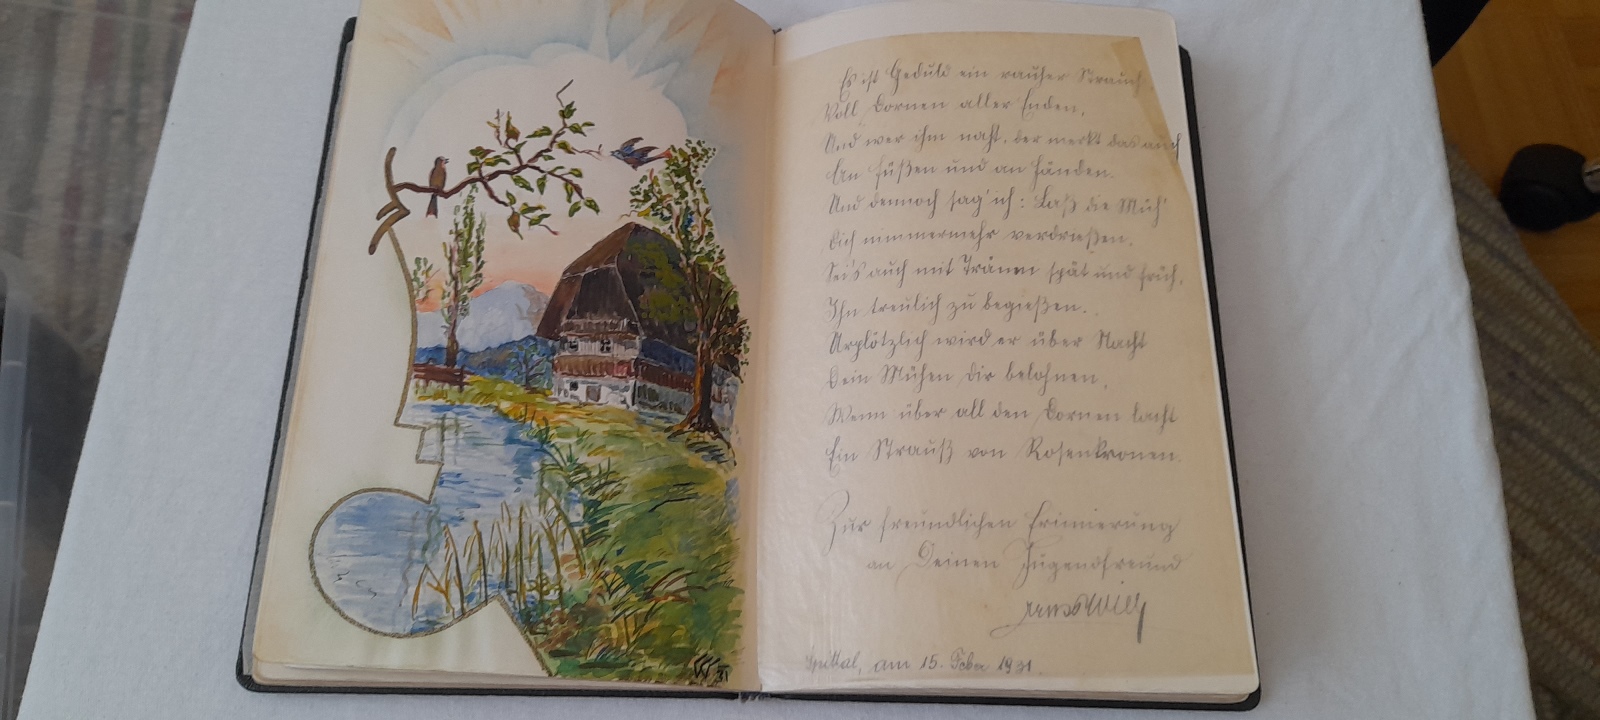 Es ist Geduld ein rauher Strauch
Voll Dornen aller Enden,
Und wer ihm naht, der merkt das auch
An Füßen und an Händen.
Und dennoch sag' ich: Laß die Müh'
Dich nimmermehr verdrießen,
Sei's auch mit Tränen spät und früh,
Ihn treulich zu begießen.
Urplötzlich wird er über Nacht
Dein Mühen dir belohnen,
Wenn über all den Dornen lacht
Ein Strauß von Rosenkronen.
Zur freundlichen Erinnerung
an Deinen Jugendfreund
Spittal, am 15. Feber 1931.
31